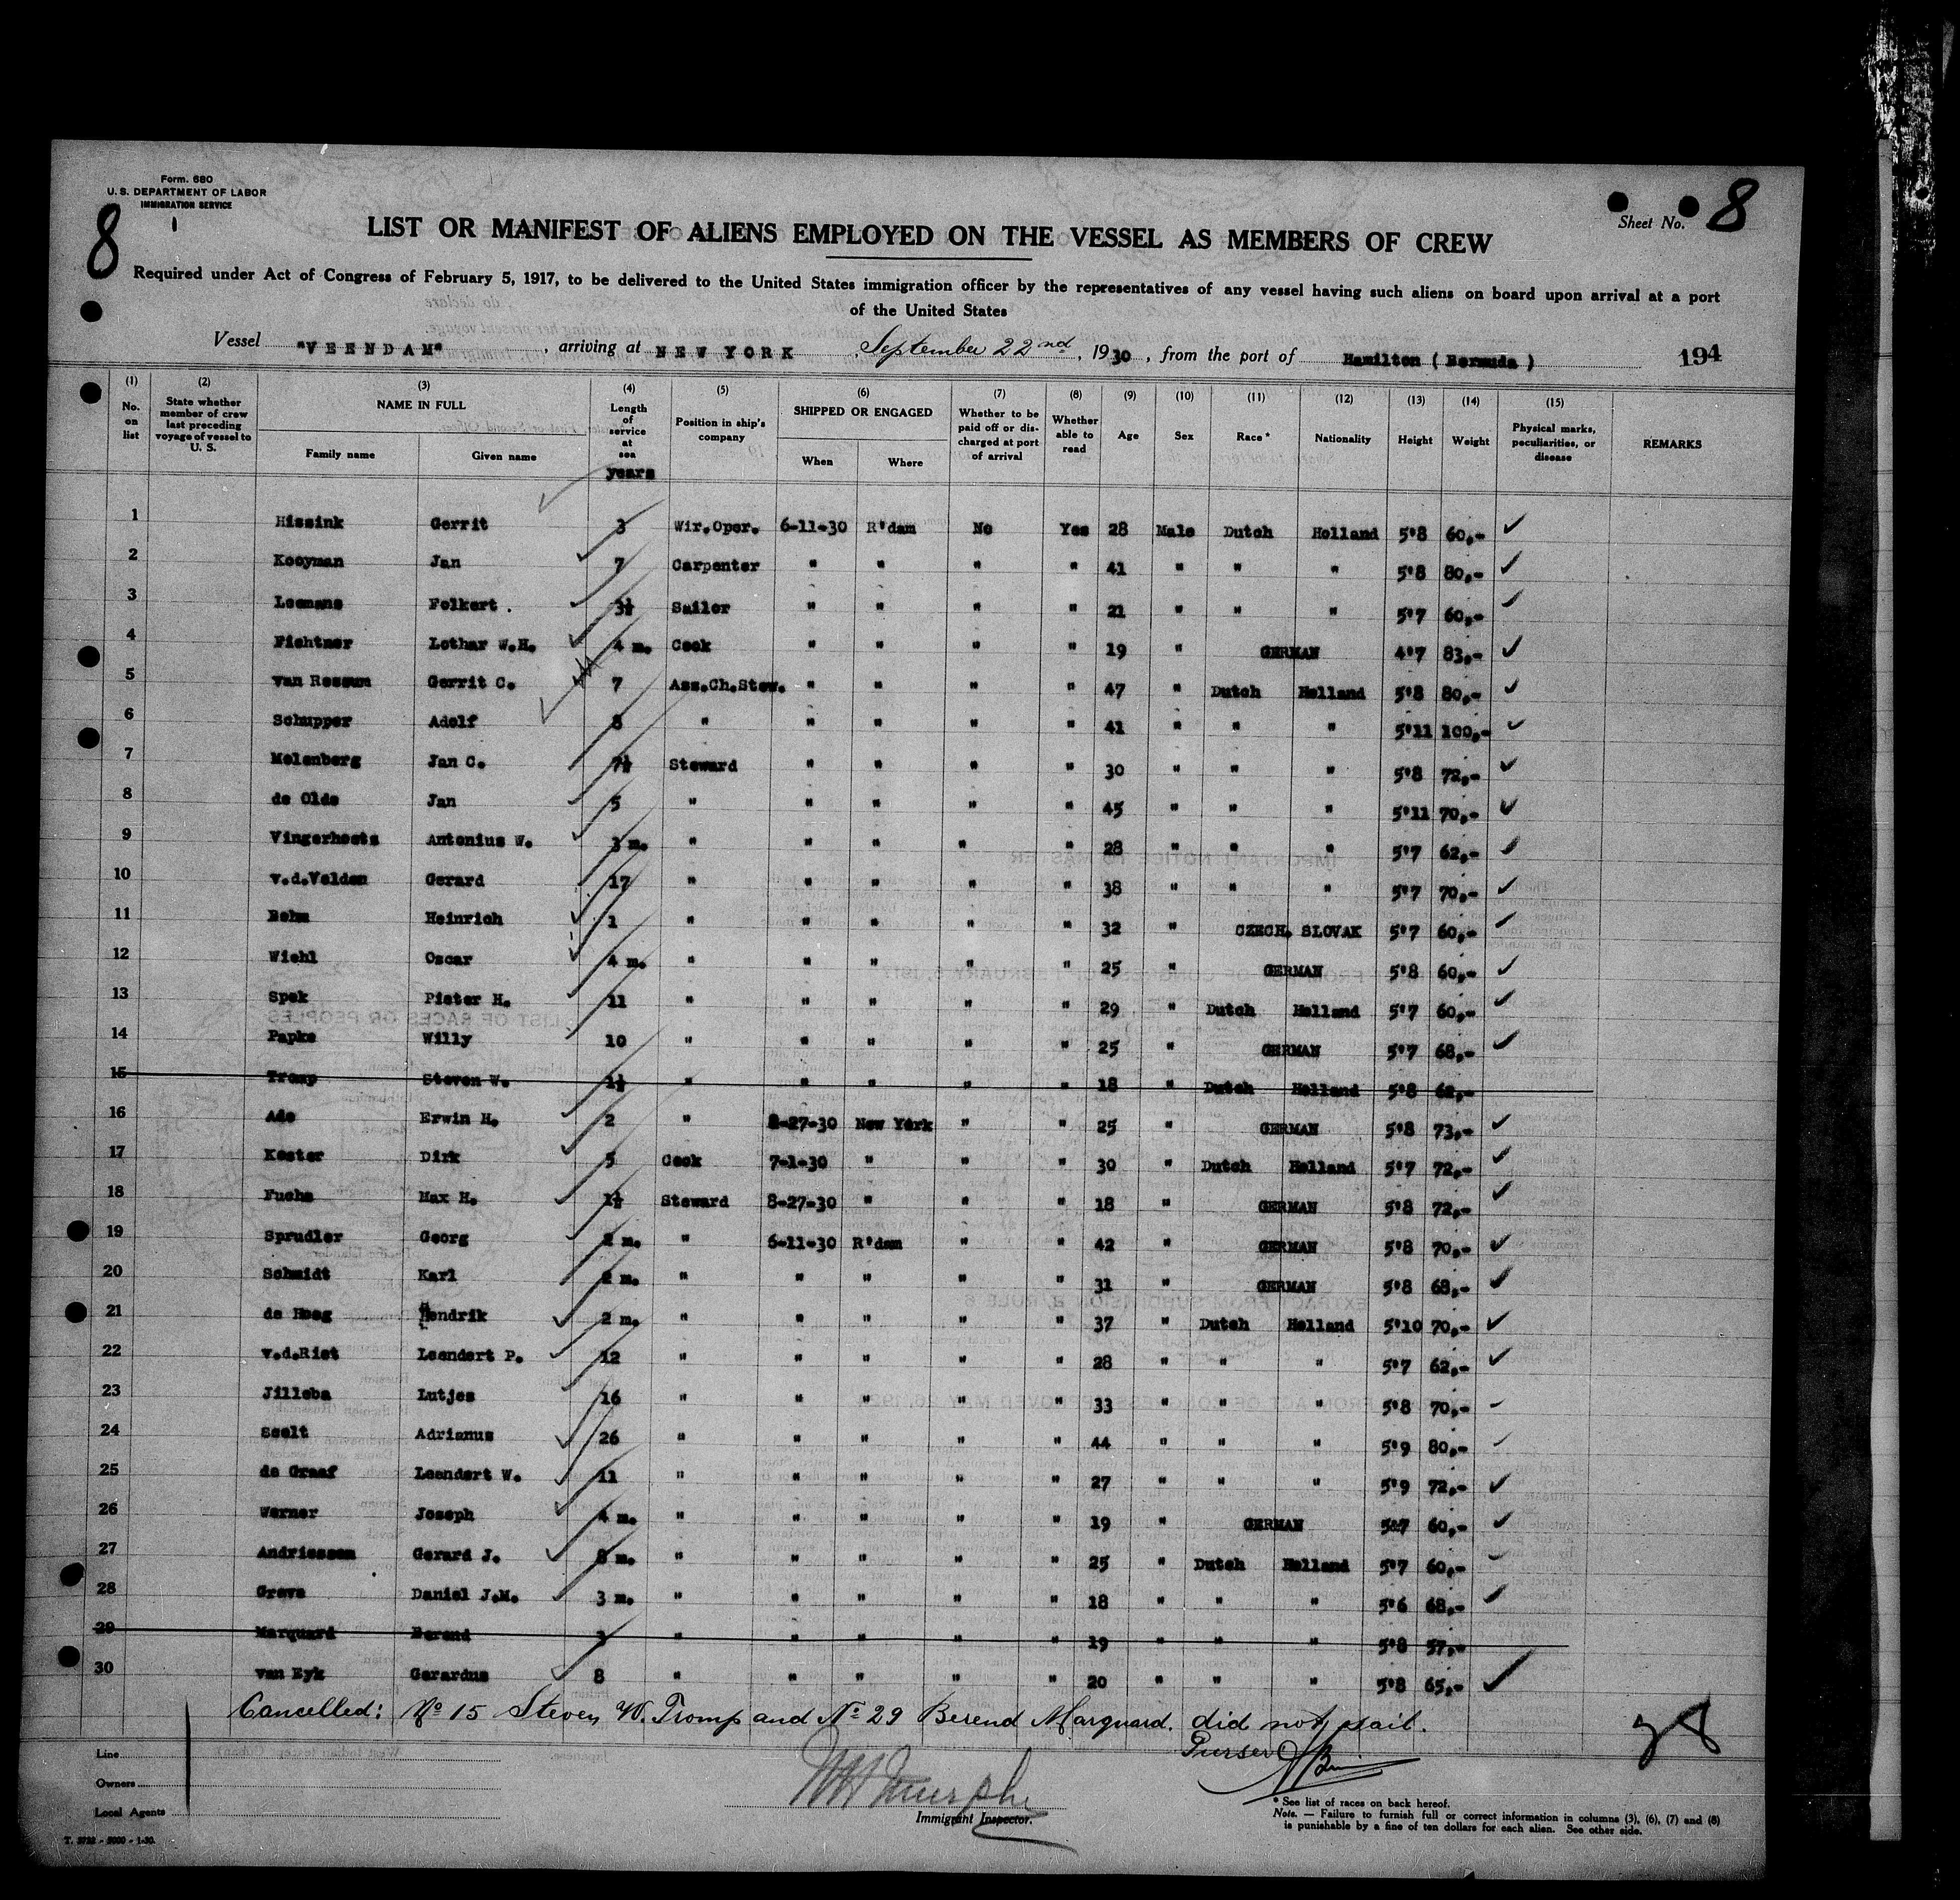 Form. 680
U. S. DEPARTMENT OF LABOR
IMMIGRATION SERVICE
8
Sheet No. 8
LIST OR MANIFEST OF ALIENS EMPLOYED ON THE VESSEL AS MEMBERS OF CREW
Required under Act of Congress of February 5, 1917, to be delivered to the United States immigration officer by the representatives of any vessel having such aliens on board upon arrival at a port
of the United States
Vessel "VEENDAM", arriving at NEW YORK, September 22nd, 1930, from the port of Hamilton ( Bermuda ) 194
(1) No. on list (2) State whether member of crew last preceding voyage of vessel to U. S. (3) NAME IN FULL Family name Given name (4) Length of service at sea years (5) Position in ship's company (6) SHIPPED OR ENGAGED When Where (7) Whether to be paid off or discharged at port of arrival (8) Whether able to read (9) Age (10) Sex (11) Race * (12) Nationality (13) Height (14) Weight (15) Physical marks, peculiarities, or disease REMARKS
1 Hissink Gerrit 3 Wir.Oper. 6-11-30 R'dam No Yes 28 Male Dutch Holland 5'8 60,-
2 Kooyman Jan 7 Carpenter " " " " 41 " " " 5'8 80,-
3 Leemans Folkert . 3½ Sailor " " " " 21 " " " 5'7 60,-
4 Fichtner Lothar W.H. 4 m. Cook " " " " 19 " GERMAN 4'7 83,-
5 van Rossum Gerrit C. 7 Ass.Ch.Stew. " " " " 47 " Dutch Holland 5'8 80,-
6 Schupper Adolf 8 " " " " " 41 " " " 5'11 100,-
7 Molenberg Jan C. 7½ Steward " " " " 30 " " " 5'8 72,-
8 de Olde Jan 5 " " " " " 45 " " " 5'11 70,-
9 Vingerhoets Antonius W. 3 m. " " " " " 28 " " " 5'7 62,-
10 v.d.Velden Gerard 17 " " " " " 38 " " " 5'7 70,-
11 Behm Heinrich 1 " " " " " 32 " CZECH. SLOVAK 5'7 60,-
12 Wiehl Oscar 4 m. " " " " " 25 " GERMAN 5'8 60,-
13 Spek Pieter H. 11 " " " " " 29 " Dutch Holland 5'7 60,-
14 Papke Willy 10 " " " " " 25 " GERMAN 5'7 68,-
15 Tromp Steven W. 1½ " " " " " 18 " Dutch Holland 5'8 62,-
16 Ade Erwin H. 2 " 8-27-30 New York " " 25 " GERMAN 5'8 73,-
17 Koster Dirk 5 Cook 7-1-30 " " " 30 " Dutch Holland 5'7 72,-
18 Fuchs Max H. 1½ Steward 8-27-30 " " " 18 " GERMAN 5'8 72,-
19 Sprudler Georg 2 m. " 6-11-30 R'dam " " 42 " GERMAN 5'8 70,-
20 Schmidt Karl 2 m. " " " " " 31 " GERMAN 5'8 68,-
21 de Hoog Hendrik 2 m. " " " " " 37 " Dutch Holland 5'10 70,-
22 v.d.Riet Leendert P. 12 " " " " " 28 " " " 5'7 62,-
23 Jilleba Lutjes 16 " " " " " 33 " " " 5'8 70,-
24 Seelt Adrianus 26 " " " " " 44 " " " 5'9 80,-
25 de Graaf Leendert W. 11 " " " " " 27 " " " 5'9 72,-
26 Werner Joseph 4 m. " " " " " 19 " GERMAN 5'7 60,-
27 Andriessen Gerard J. 8 m. " " " " " 25 " Dutch Holland 5'7 60,-
28 Greve Daniel J.M. 3 m. " " " " " 18 " " " 5'6 68,-
29 Marquard Berend 3 " " " " " 19 " " " 5'8 57,-
30 van Eyk Gerardus 8 " " " " " 20 " " " 5'8 65,-
Cancelled: No 15 Steven W. Tromp and No 29 Berend Marquard. did not sail.
Purser
28
Line
Owners
Local Agents
Immigrant Inspector.
* See list of races on back hereof.
Note. — Failure to furnish full or correct information in columns (3), (6), (7) and (8)
is punishable by a fine of ten dollars for each alien. See other side.